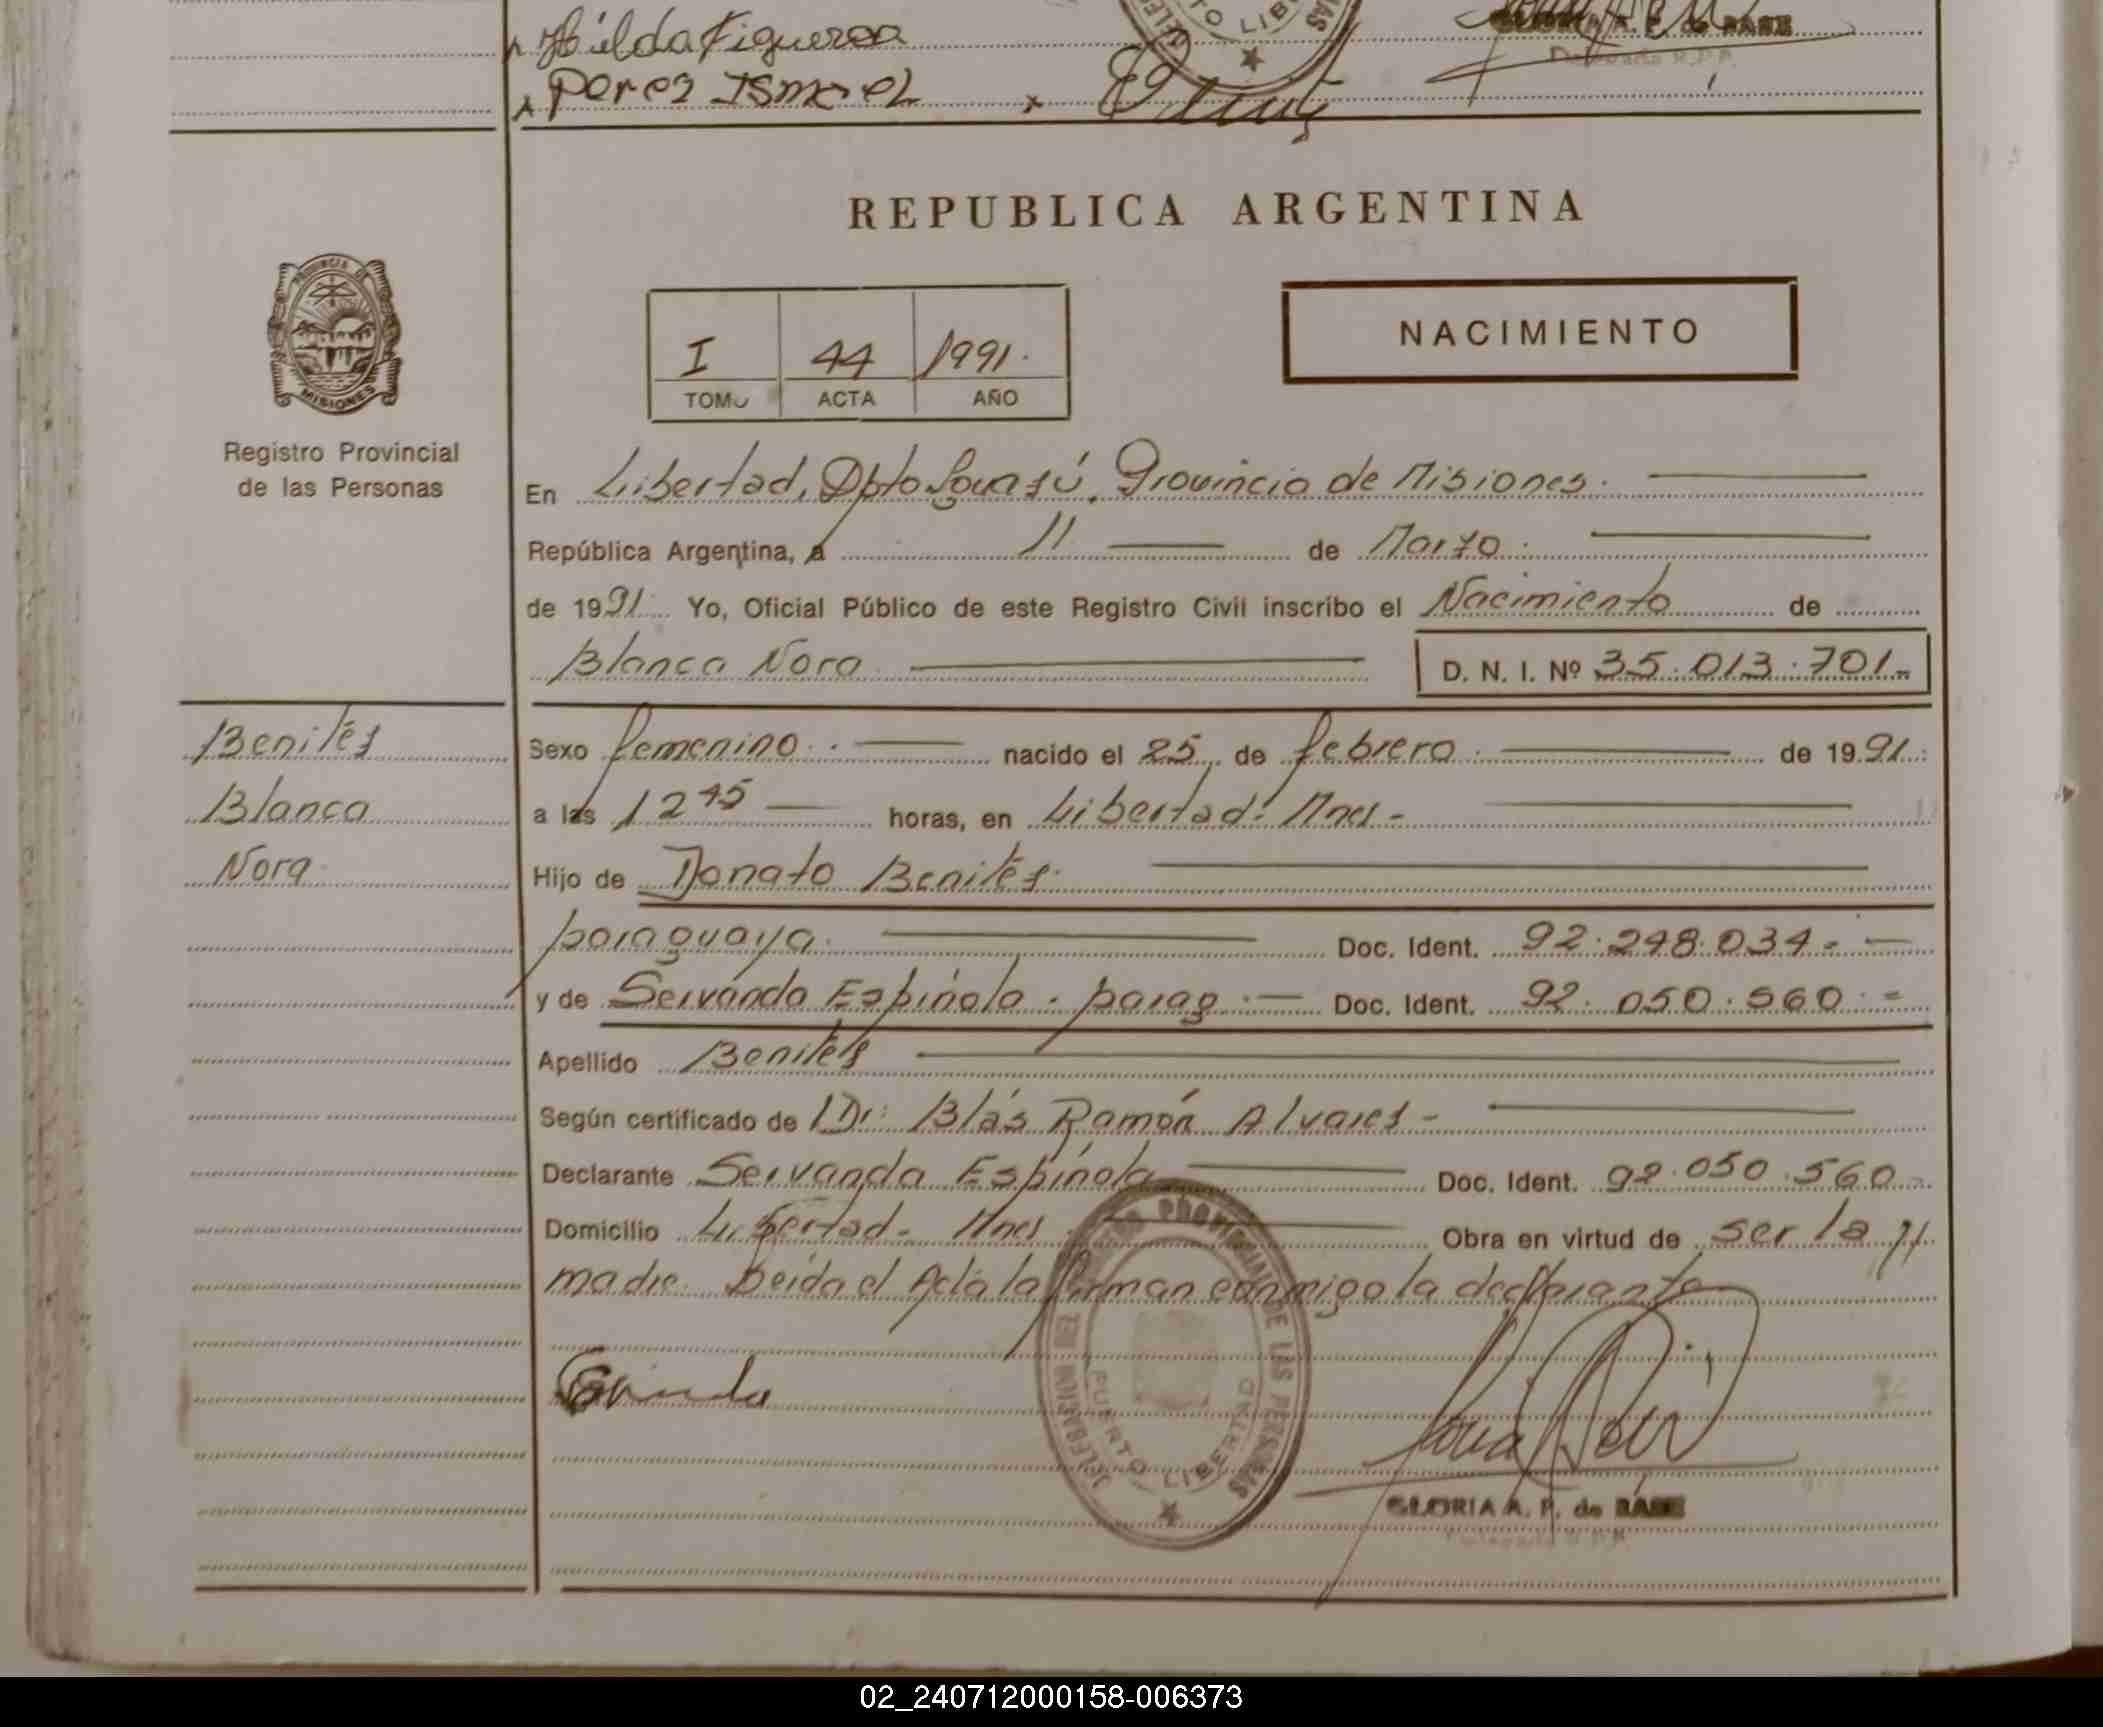 Hilda Figueroa
GLORIA A. P. de BASE
Perez Ismael
REPUBLICA ARGENTINA
PROVINCIA DE MISIONES
NACIMIENTO
I 44 1991.
TOMO ACTA AÑO
Registro Provincial
de las Personas
En Libertad, Dpto Iguazú, Provincia de Misiones.
República Argentina, a 11 de Marzo.
de 1991 Yo, Oficial Público de este Registro Civil inscribo el Nacimiento de
Blanca Nora D. N. I. Nº 35.013.701.-
Benítes
Blanca
Nora
Sexo femenino. nacido el 25 de febrero de 1991.
a las 12 45 horas, en Libertad. Mnes -
Hijo de Donato Benítes.
paraguaya. Doc. Ident. 92.248.034.-
y de Servanda Espínola. parag. Doc. Ident. 92.050.560.=
Apellido Benítes
Según certificado de Dr: Blás Ramón Alvares -
Declarante Servanda Espínola Doc. Ident. 92.050.560-
Domicilio Libertad - Mnes. Obra en virtud de ser la
madre. Leida el Acta la firman conmigo la declarante
DELEGACION DEL REGISTRO PROVINCIAL DE LAS PERSONAS
PUERTO LIBERTAD
GLORIA A. P. de BASE
02_240712000158-006373